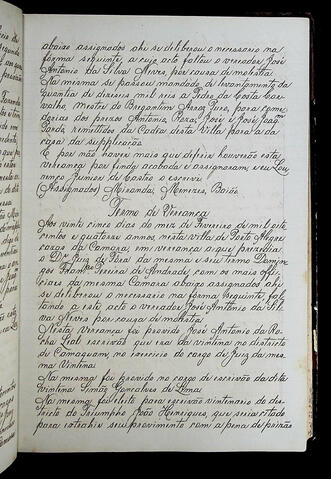 abaixo assignados ahi se deliberou o necessario na
forma seguinte, a cujo acto faltou o vereador José
Antonio da Silva Neves, por causa de molestia
Na mesma se passou mandado de levantamento da
quantia de dezeseis mil reis a Pedro da Costa Car-
valho, Mestre do Bergantim Arroz Puro, para come-
dorias dos prezos Antonio Paraz José e José Joaqm
Pardo, remettidos da Cadea desta villa para a da
casa da supplicação
E por não haver mais que deferir houverão esta
vereança por finda acabada e assignaram, eu Lou-
renço Junior de Castro o escrevi
(Assignados) Miranda, Menezes, Baião
Termo de Vereança
Aos vinte cinco dias do mez de Fevereiro de mil oito
centos e quatorze annos nesta villa de Porto Alegre
casas da Camara, em vereança a que prezidia
o Dr Juiz de Fóra da mesma e seu Termo Domin-
gos Franco Pereira de Andrade, com os mais offi-
ciaes da mesma Camara abaixo assignados ahi
se deliberou o necessario na forma seguinte, fal-
tando a este acto o vereador José Antonio da Sil-
va Neves por causa de molestia
Nesta vereança foi provido José Antonio da Ro-
cha Leal escrivão que era da vintena no districto
de Camaquam, no exercicio do cargo de Juiz da mes-
ma Vintena
Na mesma foi provido no cargo de escrivão da dita
vintena Simão Gonçalves de Lima
Na mesma foi eleito para escrivão vintenario do des-
tricto do Triumpho João Henriques, que seria citado
para extrahir seu provimento com a pena de prizão